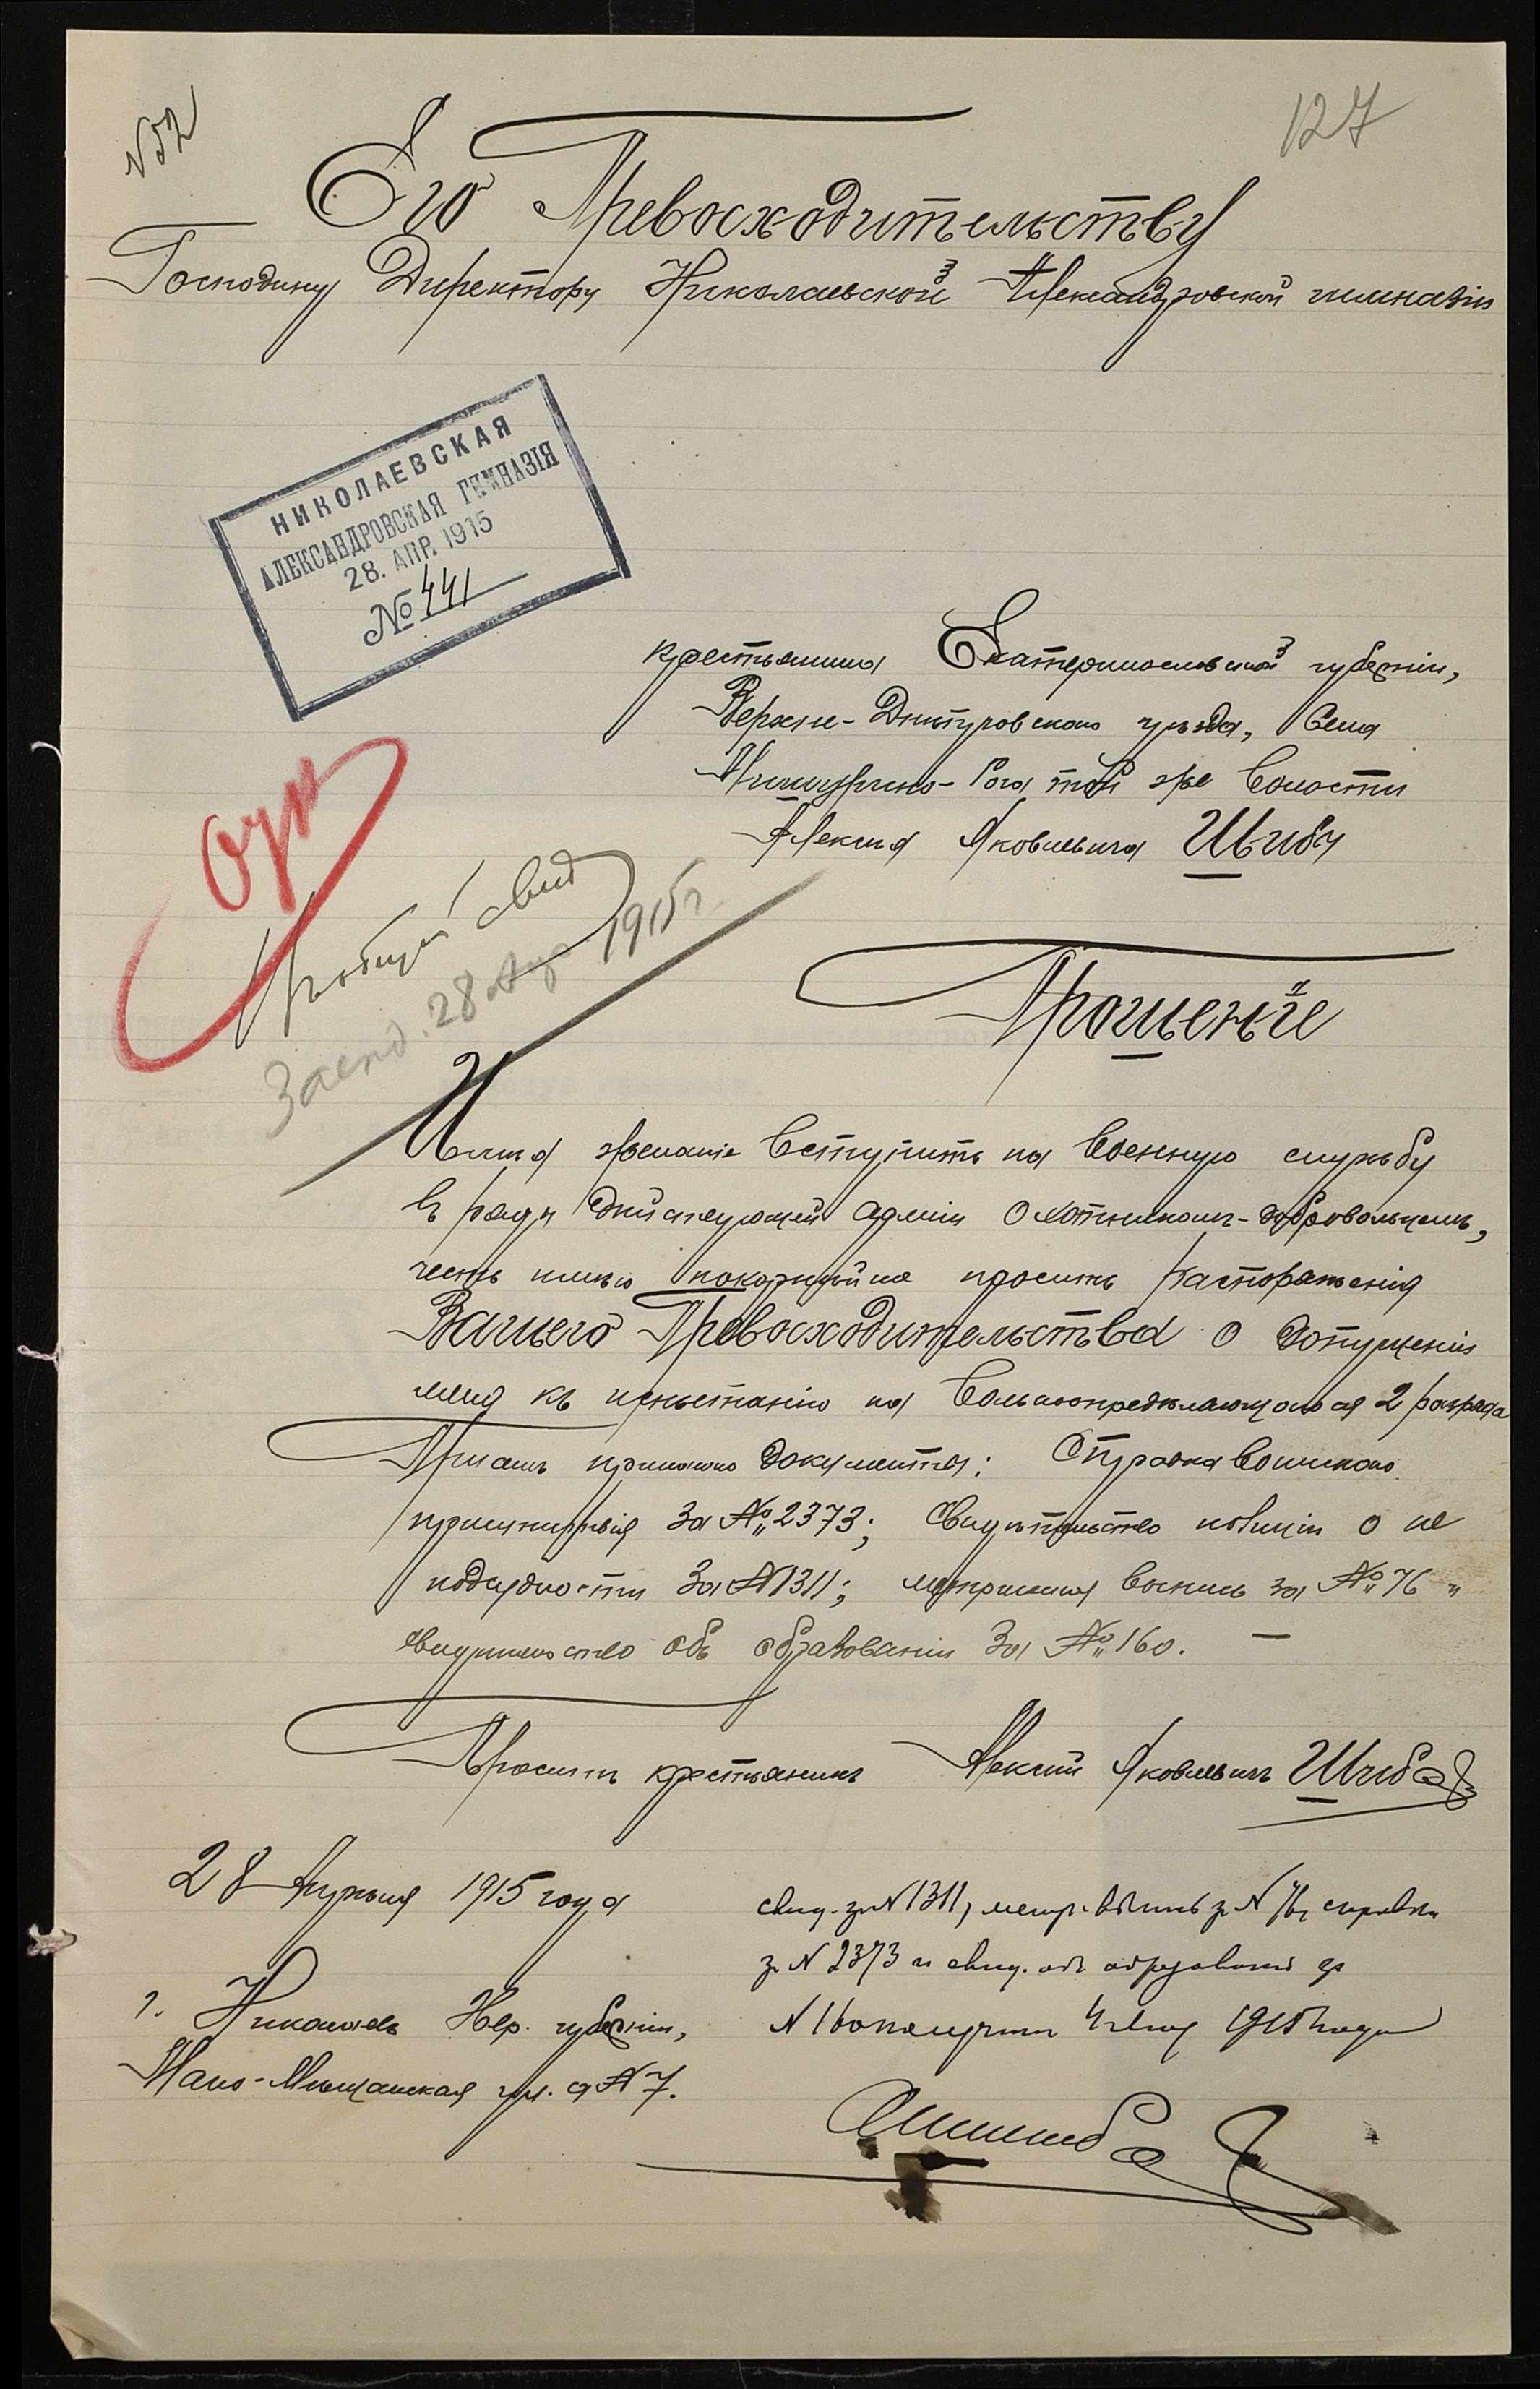 N 52
127
Его Превосходительству
Господину Директору Николаевской Александровской гимназіи
НИКОЛАЕВСКАЯ
АЛЕКСАНДРОВСКАЯ ГИМНАЗІЯ
28. АПР. 1915
№ 441
крестьянина Екатеринославской губерніи,
Верхне-Днѣпровскаго уѣзда, Села
Мишурино-Рога той же Волости
Алексѣя Яковлевича Шиба
свид
28 Апр 1915 г.
Прошенiе
Имѣя желаніе Вступить на Военную службу
въ ряды Дѣйствующей арміи Охотникомъ-добровольцемъ,
честь имѣю покорнѣйше просить распоряженія
Вашего Превосходительства о допущеніи
меня къ испытанію на Вольноопредѣляющагося 2 разряда
При семъ прилагаю документы: Справка Воинскаго
присутствія За № 2373; Свидѣтельство полиціи о не
подсудности За № 1311; метрическая выпись за № 76 и
свидѣтельство объ образованіи За № 160. —
Проситъ крестьянинъ Алексѣй Яковлевичъ Шиба
28 Апрѣля 1915 года
г. Николаевъ Хер. губерніи,
Мало-Мѣщанская ул. д № 7.
свид. за N 1311, метр. выпись за N 76, справка
за N 2373 и свид. объ образованіи за
N 160 получилъ 1915 года